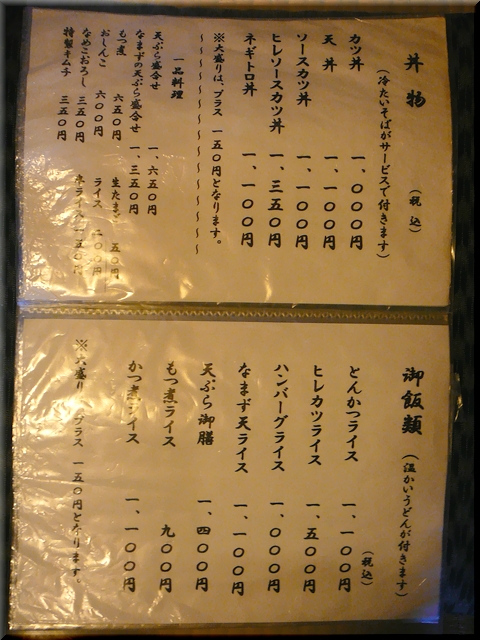 丼物
(税込)
(冷たいそばがサービスで付きます)
カツ丼 一、〇〇〇円
天丼 一、一〇〇円
ソースカツ丼 一、一〇〇円
ヒレソースカツ丼 一、三五〇円
ネギトロ丼 一、一〇〇円
※大盛りは、プラス 一五〇円となります。
~~~~~~~~~~~~~
一品料理
天ぷら盛合せ 一、六五〇円
なまずの天ぷら盛合せ 一、三五〇円
もつ煮 六五〇円
おしんこ 六〇〇円
なめこおろし 三五〇円
特製キムチ 三五〇円
生たまご 五〇円
ライス 二〇〇円
半ライス 一五〇円
御飯類 (温かいうどんが付きます)
(税込)
とんかつライス 一、一〇〇円
ヒレカツライス 一、五〇〇円
ハンバーグライス 一、〇〇〇円
なまず天ライス 一、一〇〇円
天ぷら御膳 一、四〇〇円
もつ煮ライス 九〇〇円
かつ煮ライス 一、一〇〇円
※大盛り プラス 一五〇円となります。